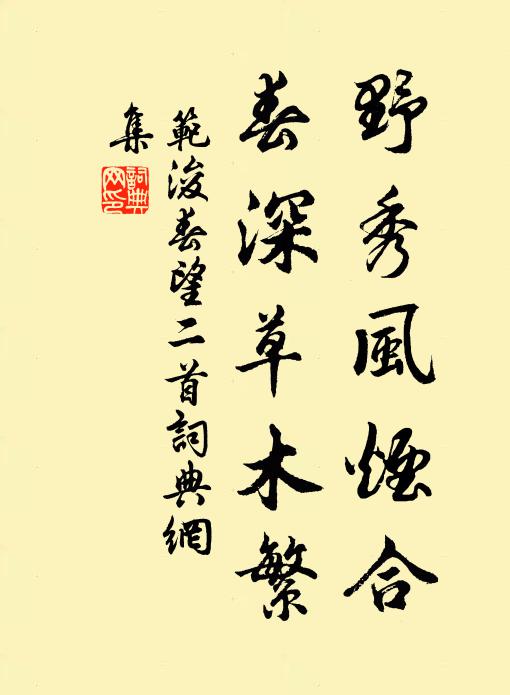 野秀風煙合
春深草木繁
範浚春望二首詞典網
集
詞典網印